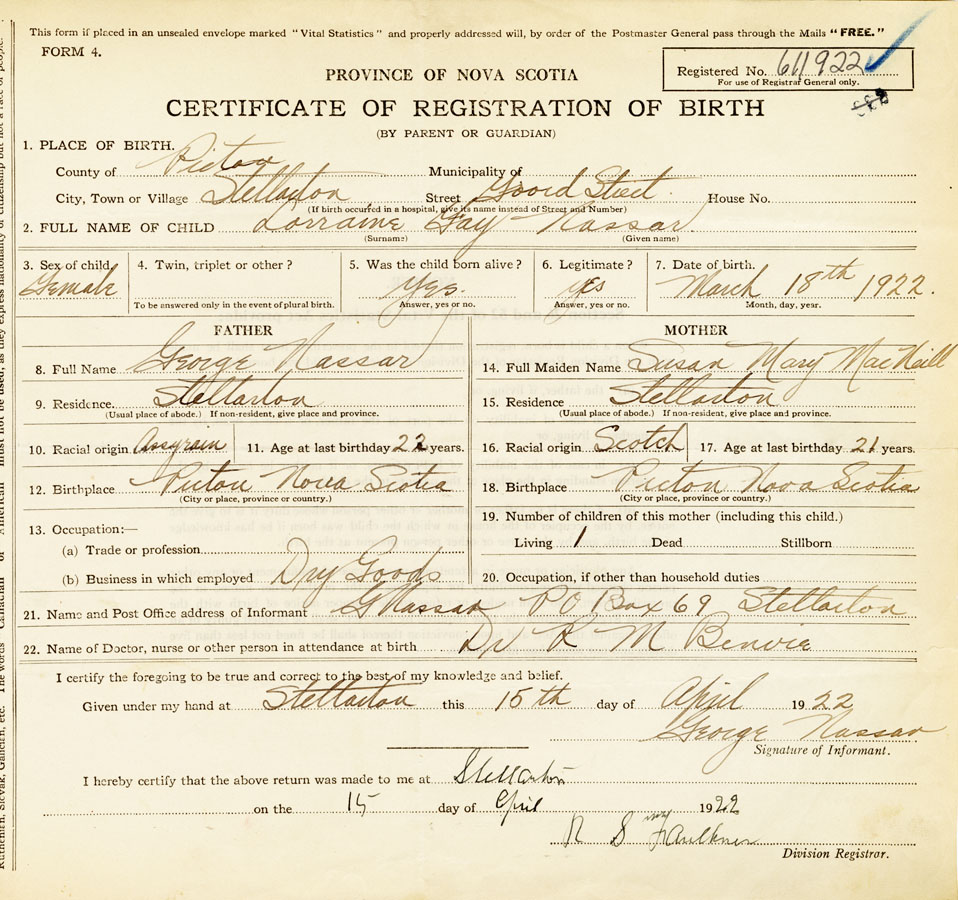 This form if placed in an unsealed envelope marked "Vital Statistics" and properly addressed will, by order of the Postmaster General pass through the Mails "FREE."
FORM 4.
Registered No. 611922
For use of Registrar General only.
PROVINCE OF NOVA SCOTIA
CERTIFICATE OF REGISTRATION OF BIRTH
(BY PARENT OR GUARDIAN)
1. PLACE OF BIRTH.
County of Pictou Municipality of
City, Town or Village Stellarton Street Foord Street. House No.
(If birth occurred in a hospital, give its name instead of Street and Number)
2. FULL NAME OF CHILD Lorraine Gay Nassar.
(Surname) (Given name)
3. Sex of child Female
4. Twin, triplet or other?
To be answered only in the event of plural birth.
5. Was the child born alive? Yes.
Answer, yes or no.
6. Legitimate? yes
Answer, yes or no.
7. Date of birth. March 18th 1922.
Month, day, year.
FATHER
8. Full Name George Nassar
9. Residence. Stellarton
(Usual place of abode.) If non-resident, give place and province.
10. Racial origin Assyrain 11. Age at last birthday 22 years.
12. Birthplace Pictou Nova Scotia
(City or place, province or country.)
13. Occupation:—
(a) Trade or profession
(b) Business in which employed Dry Goods
MOTHER
14. Full Maiden Name Susan Mary MacNeill
15. Residence Stellarton
(Usual place of abode.) If non-resident, give place and province.
16. Racial origin Scotch 17. Age at last birthday 21 years.
18. Birthplace Pictou Nova Scotia
(City or place, province or country.)
19. Number of children of this mother (including this child.)
Living 1 Dead Stillborn
20. Occupation, if other than household duties
21. Name and Post Office address of Informant G Nassar PO Box 69 Stellarton
22. Name of Doctor, nurse or other person in attendance at birth Dr R M Benvie
I certify the foregoing to be true and correct to the best of my knowledge and belief.
Given under my hand at Stellarton this 15th day of April 1922
George Nassar
Signature of Informant.
I hereby certify that the above return was made to me at Stellarton
on the 15 day of April 1922
R S Faulkner
Division Registrar.